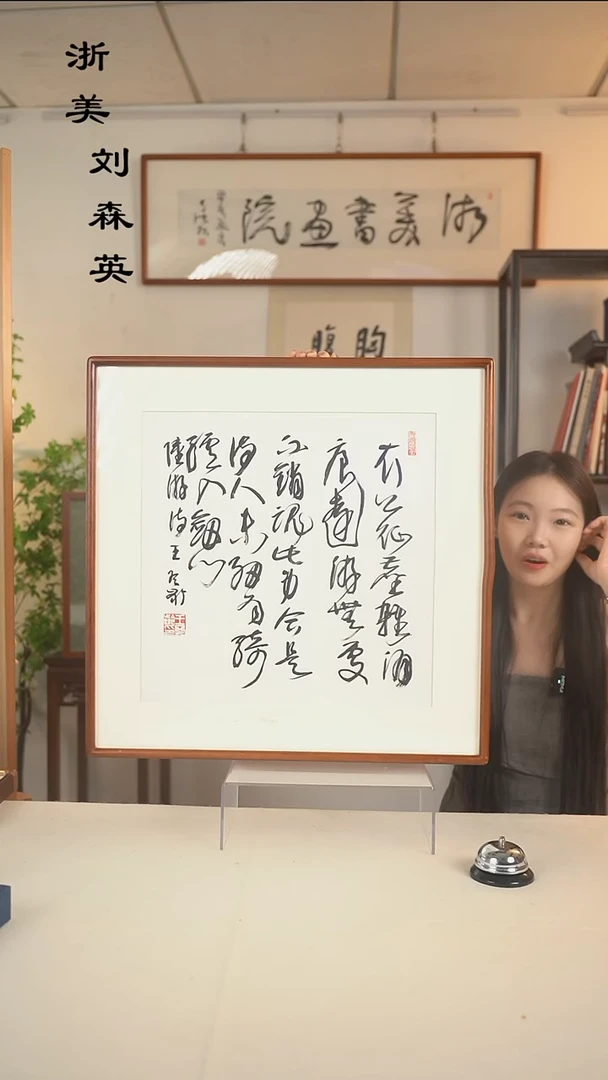 浙美
刘森英
浙美書畫院
胸腹
衣上征塵雜酒
痕遠游無處
不銷魂此身合是
詩人未細雨騎
驢入劍門
陸游詩王冬齡